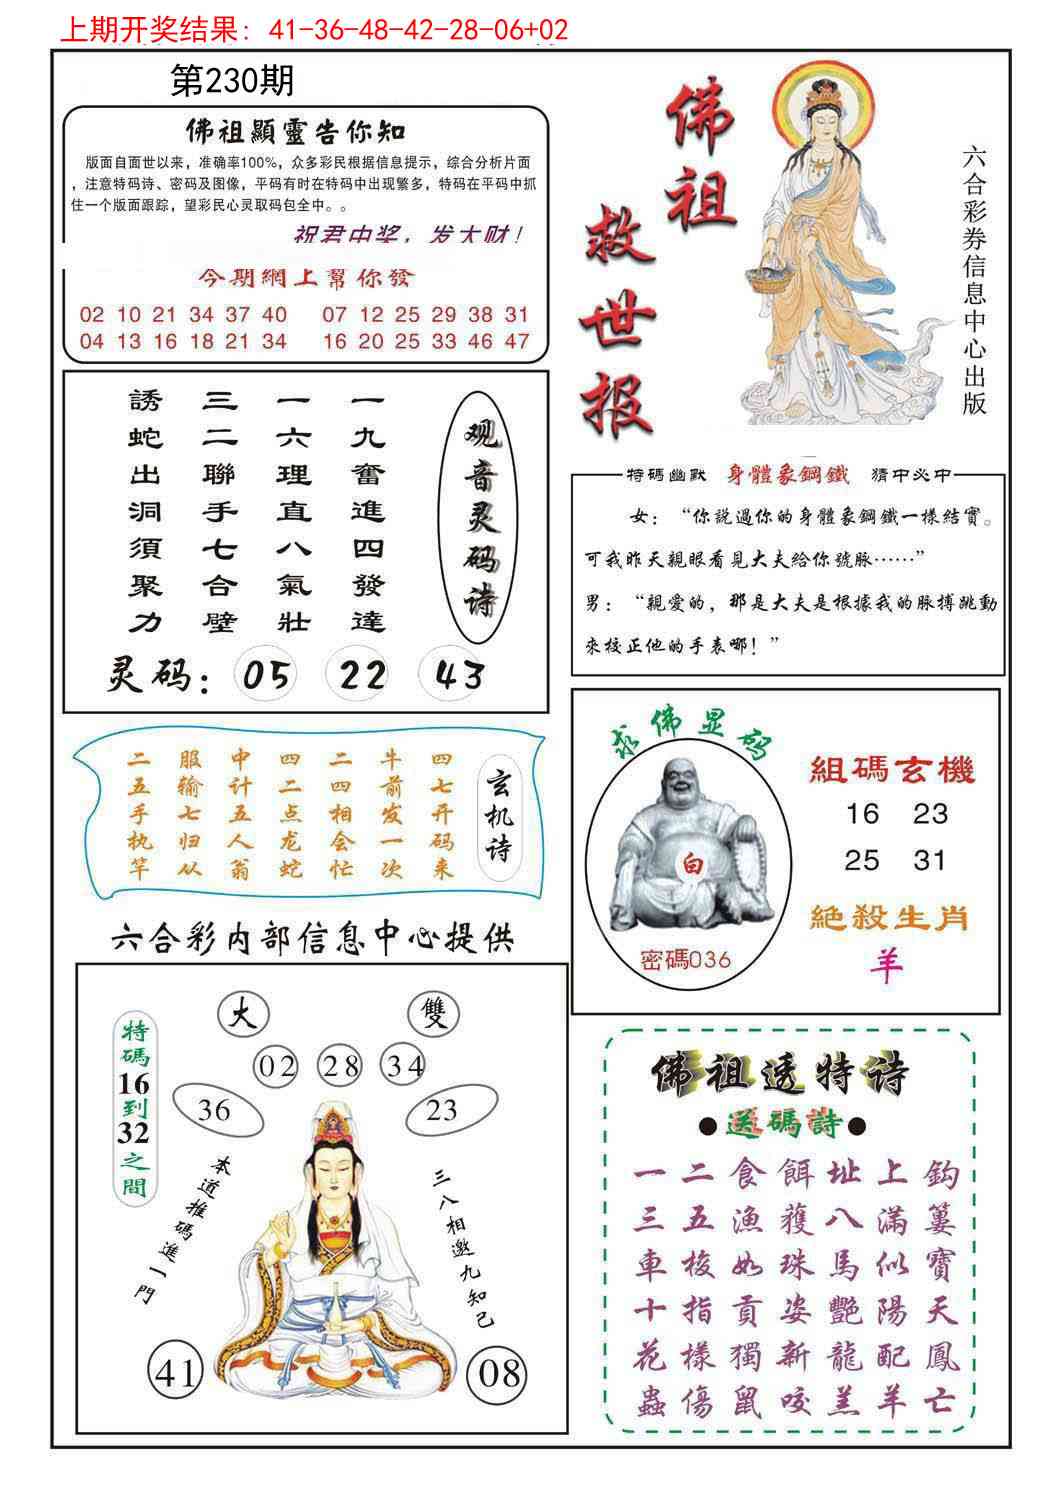 上期开奖结果: 41-36-48-42-28-06+02
第230期
佛祖顯靈告你知
版面自面世以来，准确率100%，众多彩民根据信息提示，综合分析片面
，注意特码诗、密码及图像，平码有时在特码中出现繁多，特码在平码中抓
住一个版面跟踪，望彩民心灵取码包全中。。
祝君中奖，发大财！
今期網上幫你發
02 10 21 34 37 40 07 12 25 29 38 31
04 13 16 18 21 34 16 20 25 33 46 47
佛祖
救世报
六合彩券信息中心出版
观音灵码诗
一九奮進四發達
一六理直八氣壯
三二聯手七合壁
誘蛇出洞須聚力
灵码：05 22 43
特碼幽默 身體象鋼鐵 猜中必中
女：“你說過你的身體象鋼鐵一樣結實。
可我昨天親眼看見大夫給你號脉……”
男：“親爱的，那是大夫是根據我的脉搏跳動
來校正他的手表哪！”
玄机诗
四七开码来
牛前发一次
二四相会忙
四二点龙蛇
中计五人翁
服输七归从
二五手执竿
求佛显码
白
密碼036
組碼玄機
16 23
25 31
絕殺生肖
羊
六合彩内部信息中心提供
大
雙
02 28 34
36
23
特碼16到32之間
本道推碼進一門
三八相邀九知己
41
08
佛祖透特诗
●送碼詩●
一二食餌址上鈎
三五漁獲八滿簍
車梭如珠馬似寶
十指貢姿艷陽天
花樣獨新龍配鳳
蟲傷鼠咬羔羊亡